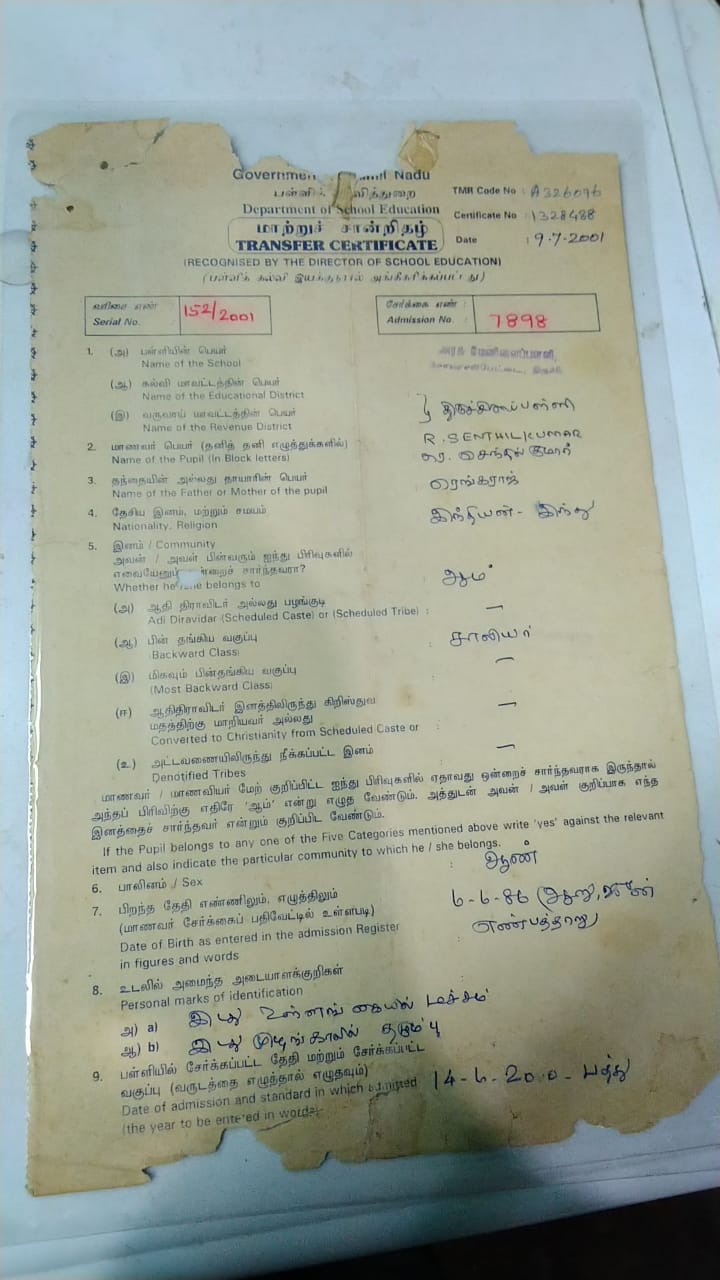 Government Tamil Nadu
பள்ளிக் கல்வித்துறை
Department of School Education
மாற்றுச் சான்றிதழ்
TRANSFER CERTIFICATE
(RECOGNISED BY THE DIRECTOR OF SCHOOL EDUCATION)
(பள்ளிக் கல்வி இயக்குநரால் அங்கீகரிக்கப்பட்டது)
TMR Code No : A326096
Certificate No : 1328488
Date : 9.7.2001
வரிசை எண்
Serial No. 152/2001
சேர்க்கை எண் :
Admission No. : 7898
1. (அ) பள்ளியின் பெயர்
Name of the School
அரசு மேனிலைப்பள்ளி,
(ஆ) கல்வி மாவட்டத்தின் பெயர்
Name of the Educational District
(இ) வருவாய் மாவட்டத்தின் பெயர்
Name of the Revenue District
திருச்சிராப்பள்ளி
2. மாணவர் பெயர் (தனித் தனி எழுத்துக்களில்)
Name of the Pupil (In Block letters)
R. SENTHILKUMAR
ரெ. செந்தில்குமார்
3. தந்தையின் அல்லது தாயாரின் பெயர்
Name of the Father or Mother of the pupil
ரெங்கராஜ்
4. தேசிய இனம், மற்றும் சமயம்
Nationality, Religion
இந்தியன் - இந்து
5. இனம் / Community
அவன் / அவள் பின்வரும் ஐந்து பிரிவுகளில்
எவையேனும் ன்றைச் சார்ந்தவரா?
Whether he/she belongs to
ஆம்
(அ) ஆதி திராவிடர் அல்லது பழங்குடி
Adi Diravidar (Scheduled Caste) or (Scheduled Tribe) : —
(ஆ) பின் தங்கிய வகுப்பு
(Backward Class)
சாலியர்
(இ) மிகவும் பின்தங்கிய வகுப்பு
(Most Backward Class) —
(ஈ) ஆதிதிராவிடர் இனத்திலிருந்து கிறிஸ்துவ
மதத்திற்கு மாறியவர் அல்லது
Converted to Christianity from Scheduled Caste or : —
(உ) அட்டவணையிலிருந்து நீக்கப்பட்ட இனம்
Denotified Tribes : —
மாணவர் / மாணவியர் மேற் குறிப்பிட்ட ஐந்து பிரிவுகளில் ஏதாவது ஒன்றைச் சார்ந்தவராக இருந்தால்
அந்தப் பிரிவிற்கு எதிரே 'ஆம்' என்று எழுத வேண்டும். அத்துடன் அவன் / அவள் குறிப்பாக எந்த
இனத்தைச் சார்ந்தவர் என்றும் குறிப்பிட வேண்டும்.
If the Pupil belongs to any one of the Five Categories mentioned above write 'yes' against the relevant
item and also indicate the particular community to which he / she belongs.
6. பாலினம் / Sex : ஆண்
7. பிறந்த தேதி எண்ணிலும், எழுத்திலும்
(மாணவர் சேர்க்கைப் பதிவேட்டில் உள்ளபடி)
Date of Birth as entered in the admission Register
in figures and words
6-6-86 (ஆறு, ஜூன்
எண்பத்தாறு)
8. உடலில் அமைந்த அடையாளக்குறிகள்
Personal marks of identification
அ) a) இடது உள்ளங் கையில் மச்சம்
ஆ) b) இடது முழங்காலில் தழும்பு
9. பள்ளியில் சேர்க்கப்பட்ட தேதி மற்றும் சேர்க்கப்பட்ட
வகுப்பு (வருடத்தை எழுத்தால் எழுதவும்)
Date of admission and standard in which admitted
(the year to be entered in words)
14-6-2000 - பத்து